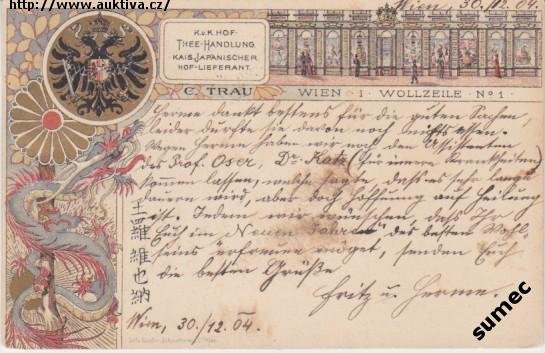 http://www.auktiva.cz/
Wien, 30./12. 04.
K.u.K. HOF-
THEE-HANDLUNG.
KAIS. JAPANISCHER
HOF-LIEFERANT.
C. TRAU WIEN · I · WOLLZEILE No 1 ·
Herme dankt bestens für die guten Sachen,
leider durfte sie davon noch nichts essen.
Wegen Herme haben wir noch den Assistenten
des Prof. Oser, Dr. Katz (für innere Krankheiten)
kommen lassen, welcher sagte, dass es sehr lange
dauern wird, aber doch Hoffnung auf Heilung
ist. Indem wir wünschen, dass Ihr
Euch im "Neuen Jahre" des besten Wohl-
seins erfreuen möget, senden Euch
die besten Grüße
Fritz u. Herme.
羅維也納
Wien, 30./12. 04.
sumec